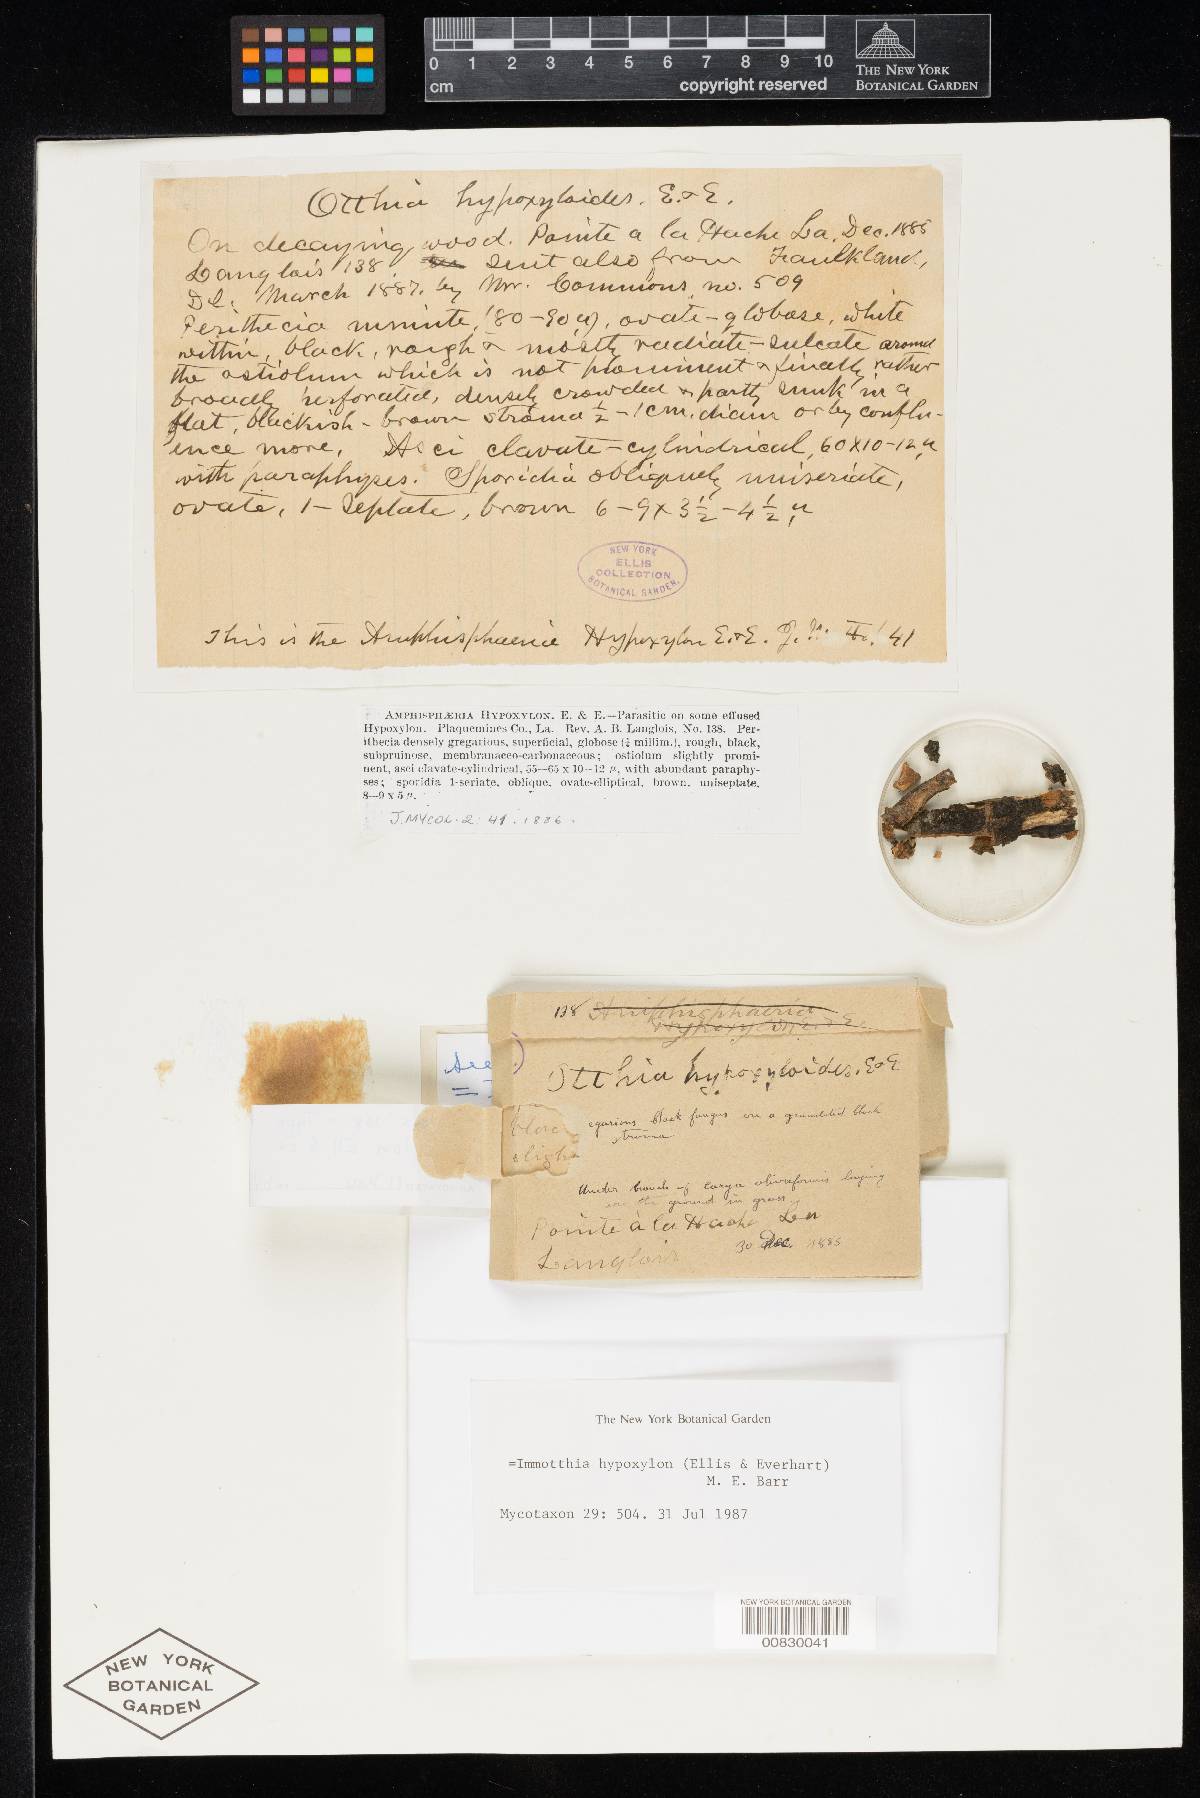 0 1 2 3 4 5 6 7 8 9 10
cm copyright reserved
THE NEW YORK
BOTANICAL GARDEN
Otthia hypoxyloides. E. & E.
On decaying wood. Pointe a la Hache La, Dec. 1885
Langlois 138 sent also from Faulkland,
Del. March 1887. by Mr. Commons no. 509
Perithecia minute, (80-90 µ), ovate-globose, white
within, black, rough & mostly radiate-sulcate around
the ostiolum which is not prominent & finally rather
broadly perforated, densely crowded & partly sunk in a
flat, blackish-brown stroma ½-1 cm. diam or by conflu-
ence more. Asci clavate-cylindrical, 60 x 10-12 µ
with paraphyses. Sporidia obliquely uniseriate,
ovate, 1-septate, brown 6-9 x 3½-4½ µ
NEW YORK
ELLIS
COLLECTION
BOTANICAL GARDEN.
This is the Amphisphaeria Hypoxylon E. & E. J. M. II. 41
AMPHISPHÆRIA HYPOXYLON. E. & E.—Parasitic on some effused
Hypoxylon. Plaquemines Co., La. Rev. A. B. Langlois, No. 138. Per-
ithecia densely gregarious, superficial, globose (¼ millim.), rough, black,
subpruinose, membranaceo-carbonaceous; ostiolum slightly promi-
nent, asci clavate-cylindrical, 55—65 x 10—12 µ, with abundant paraphy-
ses; sporidia 1-seriate, oblique, ovate-elliptical, brown, uniseptate,
8—9 x 5 µ.
J. MYCOL. 2: 41. 1886.
138 Amphisphaeria
Hypoxylon E. & E.
Otthia hypoxyloides. E & E
egarious black fungus on a granulated black
stroma
Under branch of Carya olivaeformis lying
on the ground in grass
Pointe à la Hache La
30 Dec. 1885
Langlois
The New York Botanical Garden
=Immotthia hypoxylon (Ellis & Everhart)
M. E. Barr
Mycotaxon 29: 504. 31 Jul 1987
NEW YORK BOTANICAL GARDEN
00830041
NEW YORK
BOTANICAL
GARDEN